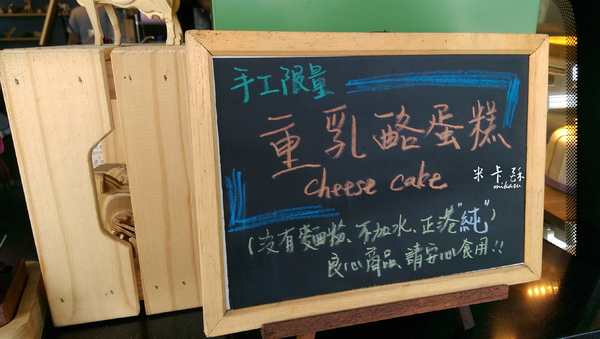 手工限量
重乳酪蛋糕
cheese cake
米卡穌
mikasu
(沒有麵粉、不加水、正港"純")
良心商品、請安心食用!!